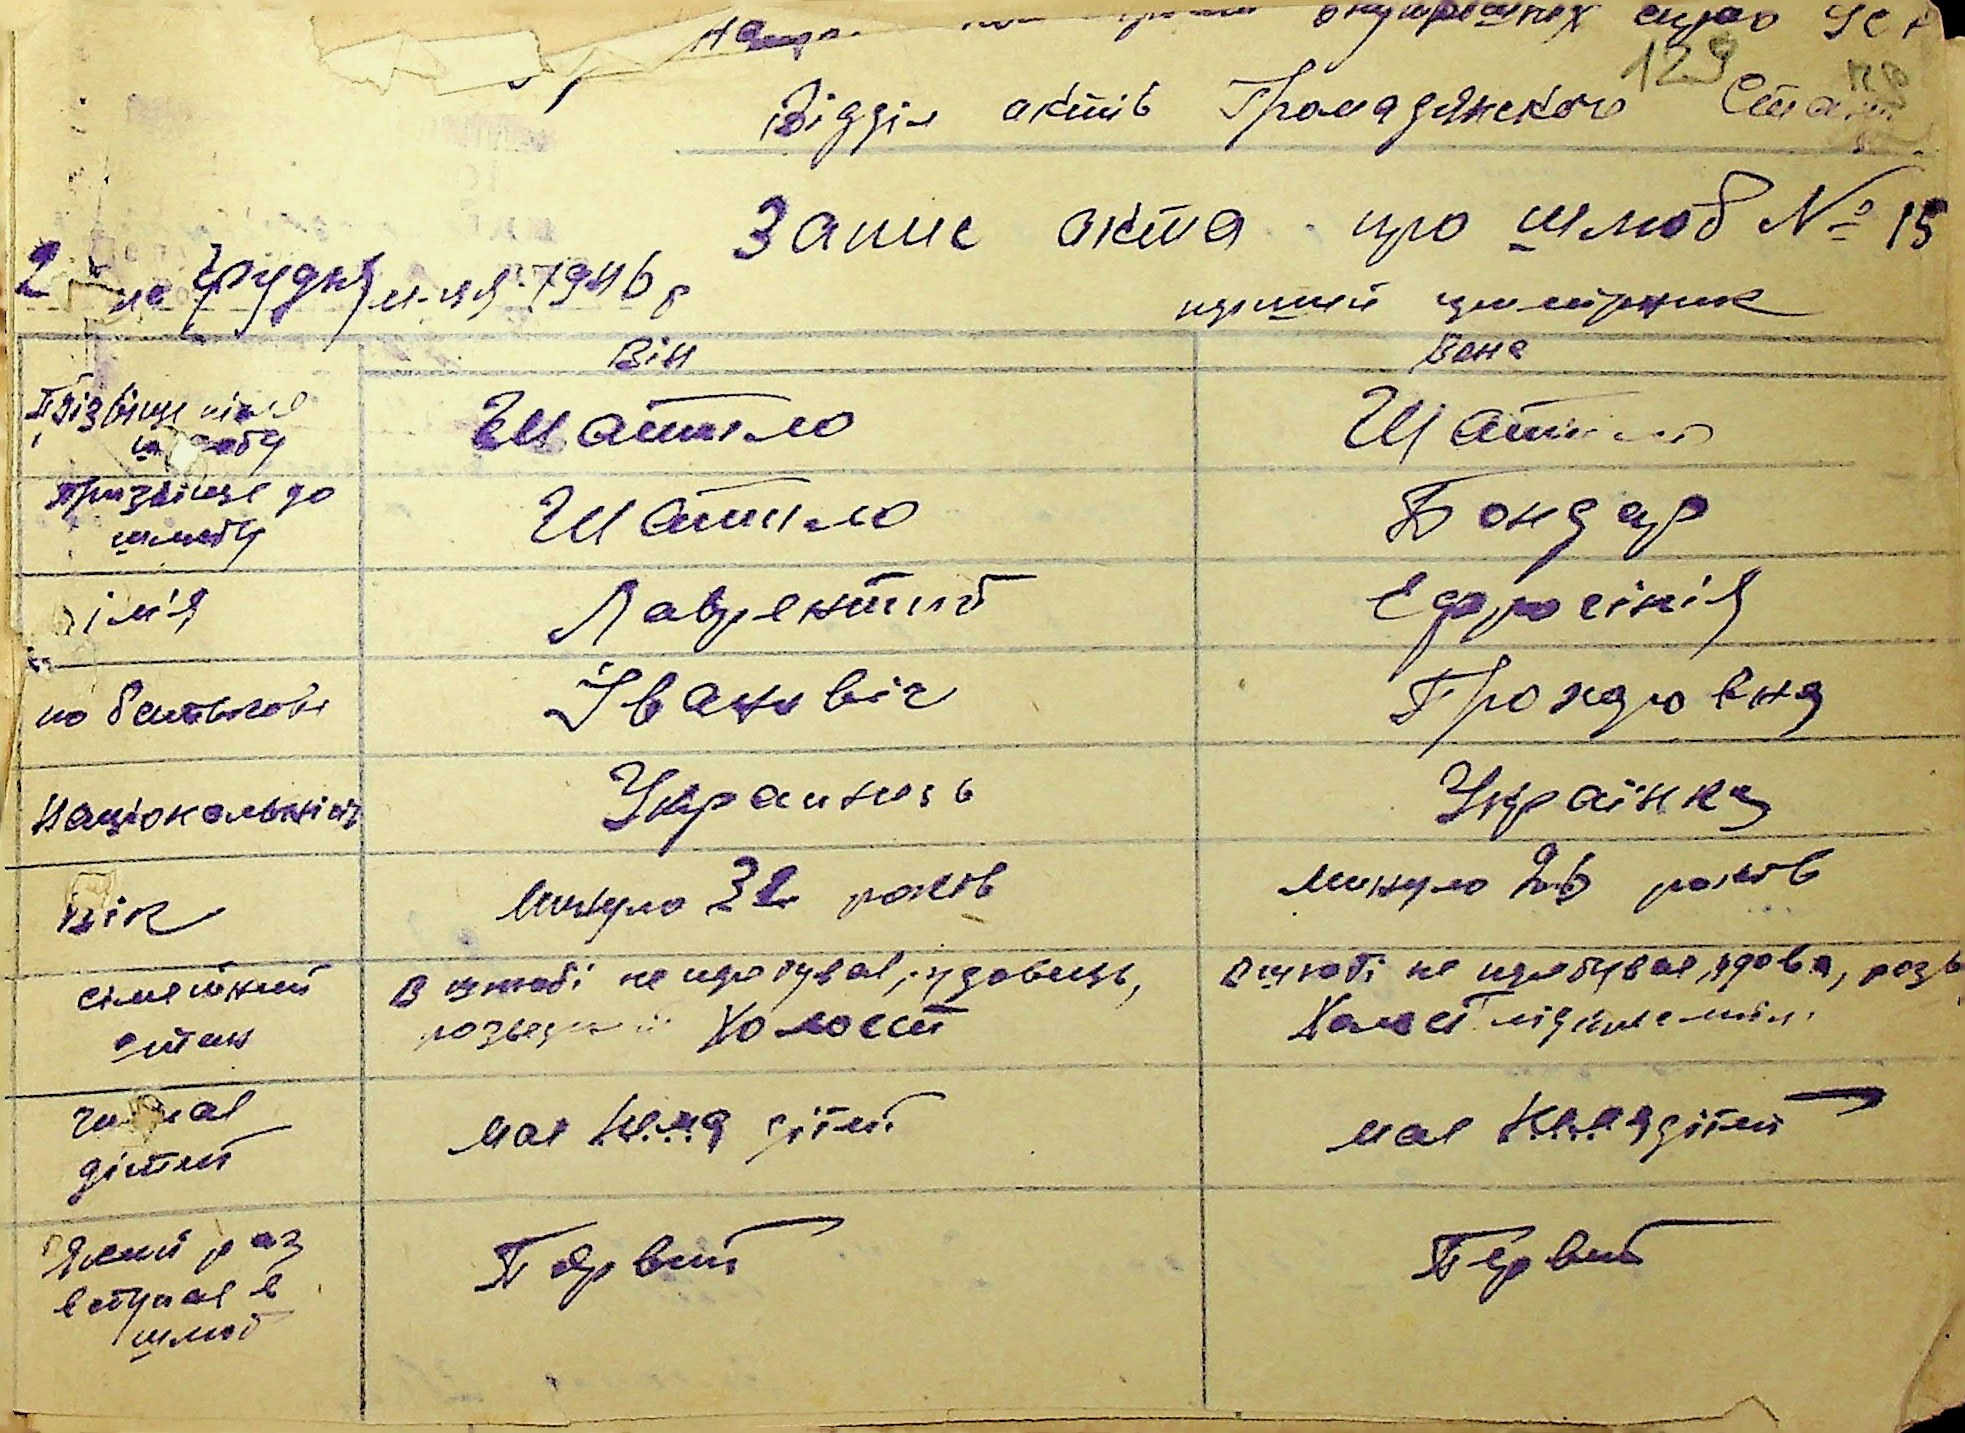 внутрішніх справ УСР
129
Відділ актів Громадянского Стану
Запис акта про шлюб № 15
2 го грудня м-ця 1946 р
перший примірник
Він Вона
Прізвище після шлюбу Шатило Шатило
Призвіще до шлюбу Шатило Бондар
імʼя Лаврентий Ефросінія
по батькові Івановіч
Національність Украинець Українка
Вік Минуло 32 років Минуло 26 років
сімейний стан В шлюбі не пребував, удовець, В шлюбі не пребувае, вдова, розв
розведений Холост Холост
чи мае дітей мае нема дітей мае нема дітей
Який раз вступае в шлюб Первий Первий